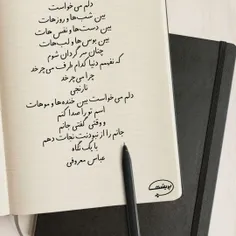 دلم می‌خواست
بین شب‌ها و روزهات
بین دست‌ها و نفس‌هات
بین بوس‌ها و لب‌هات
چنان سرگردان شوم
که نفهمم دنیا کدام طرف می‌چرخد
چرا می‌چرخد
نارنجی
دلم می‌خواست بین خنده‌ها و موهات
اسم تو را صدا کنم
و وقتی گفتی جانم
جانم را از نبودنت نجات دهم
با یک نگاه
عباس معروفی